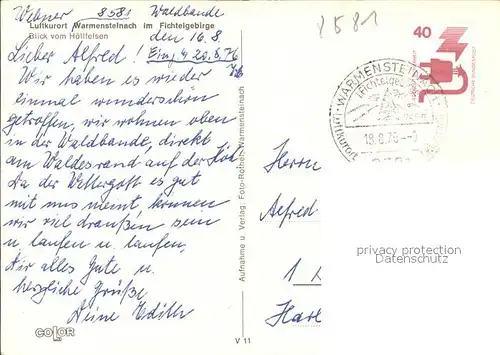 Wehner 8581 Waldbaude
Luftkurort Warmensteinach im Fichtelgebirge
Blick vom Höllfelsen
den 16.8.
Lieber Alfred! Eing. 20.8.76
Wir haben es wieder
einmal wunderschön
getroffen, wir wohnen oben
in der Waldbaude, direkt
am Waldesrand auf der Höh
Da der Wettergott es gut
mit uns meint, können
wir viel draußen sein
u. laufen u. laufen,
Dir alles Gute u.
herzliche Grüße
Deine Edith
COLOR
V 11
Aufnahme u. Verlag: Foto-Rother, Warmensteinach
8581
40
WARMENSTEINACH
Luftkurort
18.8.76
Herrn
Alfred
1
privacy protection
Datenschutz